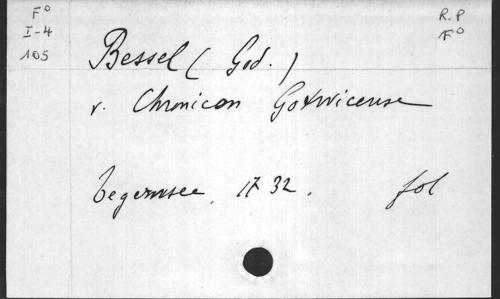 F° R.P
I-4 F°
105
Bessel (God.)
v. Chronicon Gotwicense
Tegernsee, 1732. fol